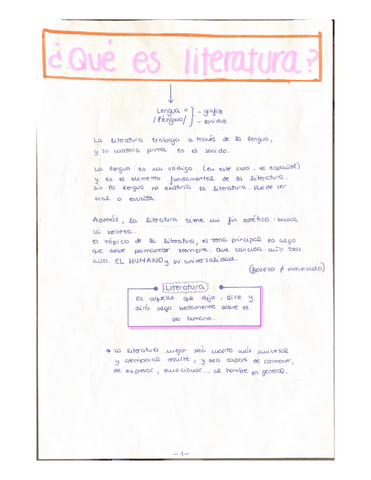 ¿Qué es literatura?
Lengua } - grafía
/léngwa/ } - sonidos
La literatura trabaja a través de la lengua,
y su materia prima es el sonido.
La lengua es un código (en este caso, el español)
y es el elemento fundamental de la literatura.
Sin la lengua no existiría la literatura. Puede ser
oral o escrita.
Además, la literatura tiene un fin estético: busca
la belleza.
El tópico de la literatura, el tema principal es algo
que debe permanecer siempre. Que coincida año tras
año. EL HUMANO y su universalidad.
(Belleza ≠ universal)
Literatura
Es aquello que dijo, dice y
dirá algo bellamente sobre el
ser humano.
La literatura mejor será cuanto más universal
y atemporal resulte, y sea capaz de conmover,
de expresar, emocionar... al hombre en general.
-1-